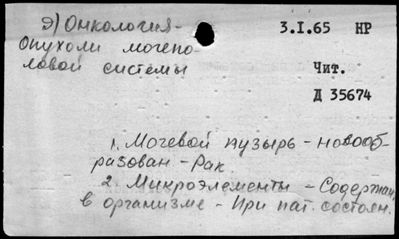 д) Онкология -
Опухоли мочепо-
ловой системы
3.I.65 НР
Чит.
Д 35674
1. Мочевой пузырь - новооб-
разован - Рак.
2. Микроэлементы - Содержан.
в организме - При пат. состоян.